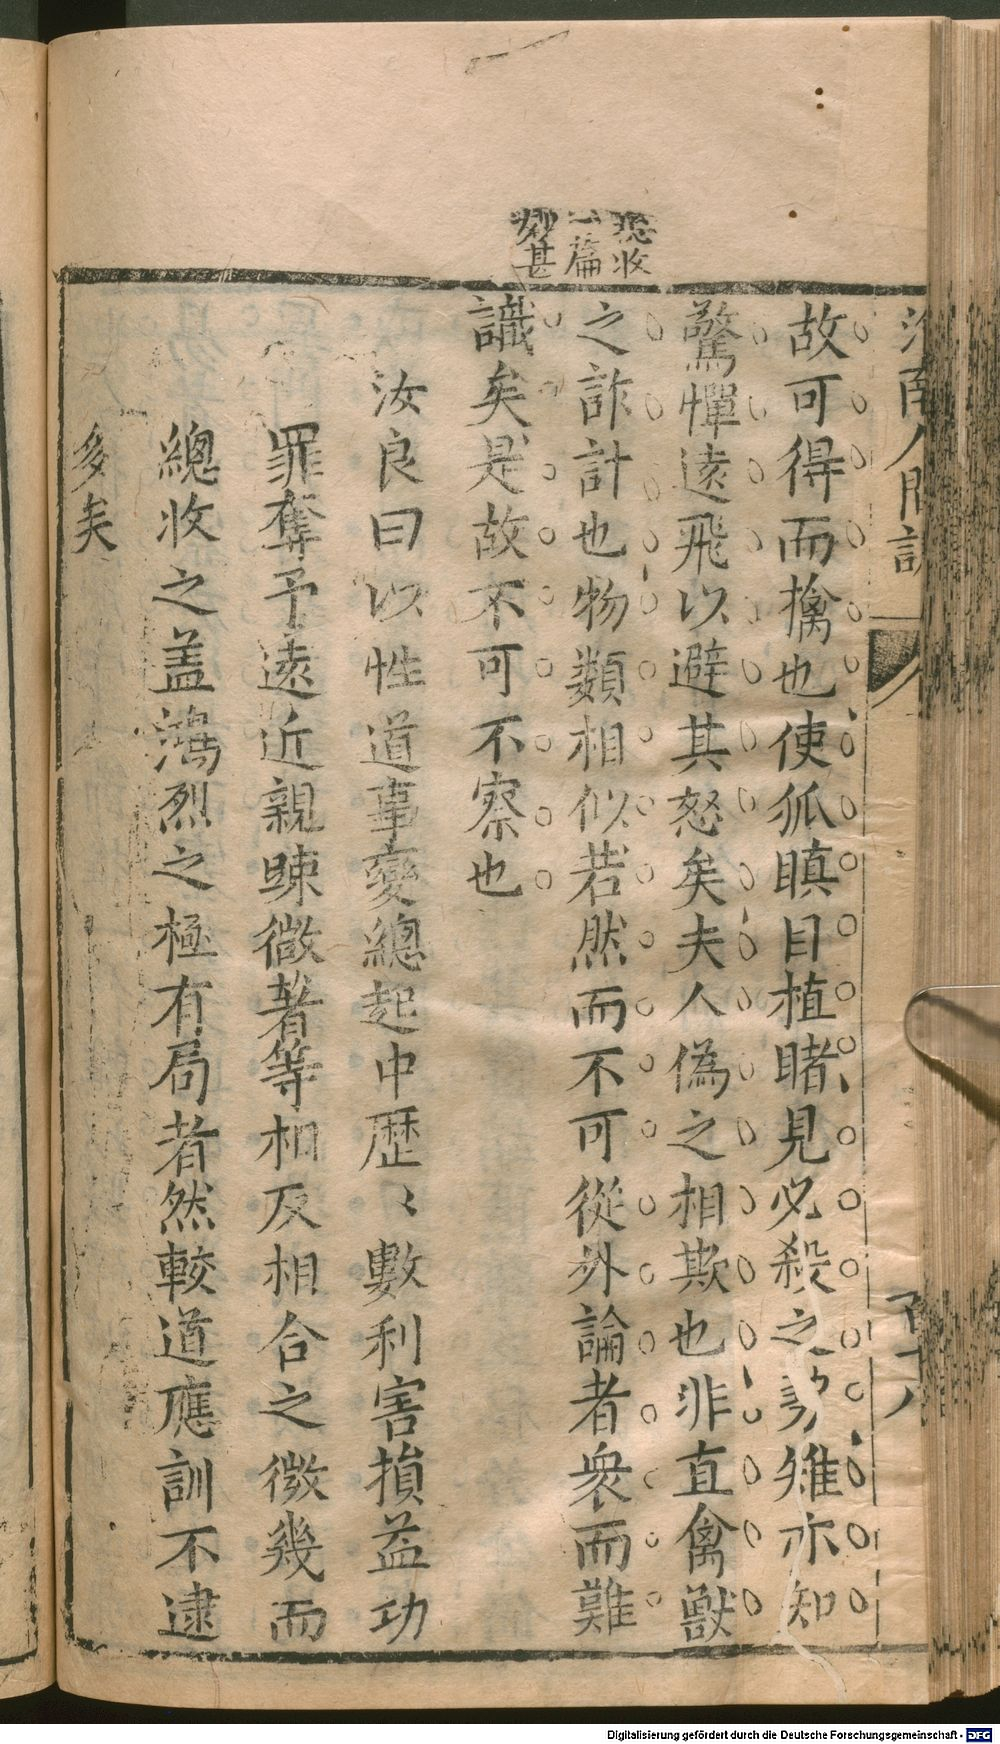 故可得而擒也使狐瞋目植睹見必殺之勢雉亦知
驚憚遠飛以避其怒矣夫人偽之相欺也非直禽獸
之詐計也物類相似若然而不可從外論者衆而難
識矣是故不可不察也
總收
一篇
妙甚
汝良曰以性道事變總起中歷〻數利害損益功
罪奪予遠近親踈微著等相反相合之微幾而
總收之盖鴻烈之極有局者然較道應訓不逮
多矣
南人間訓
Digitalisierung gefördert durch die Deutsche Forschungsgemeinschaft - DFG